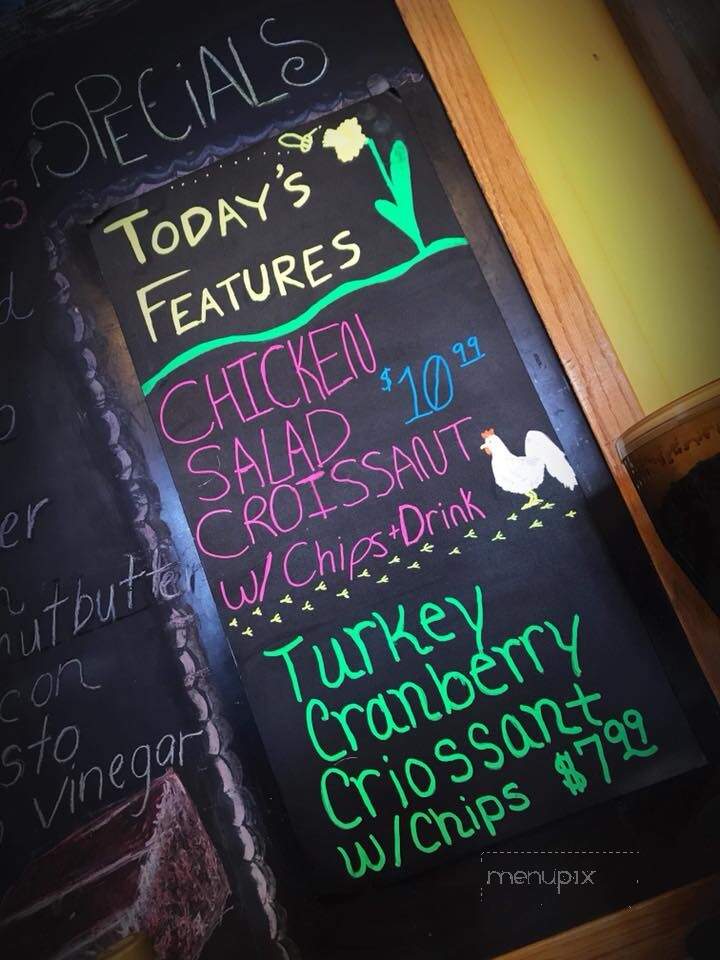 SPECiALS
TODAY'S
FEATURES
CHICKEN
SALAD $10.99
CROISSANT
W/ Chips+Drink
Turkey
Cranberry
Criossant
w/Chips $7.99
er
nutbutter
con
sto
vinegar
menupix